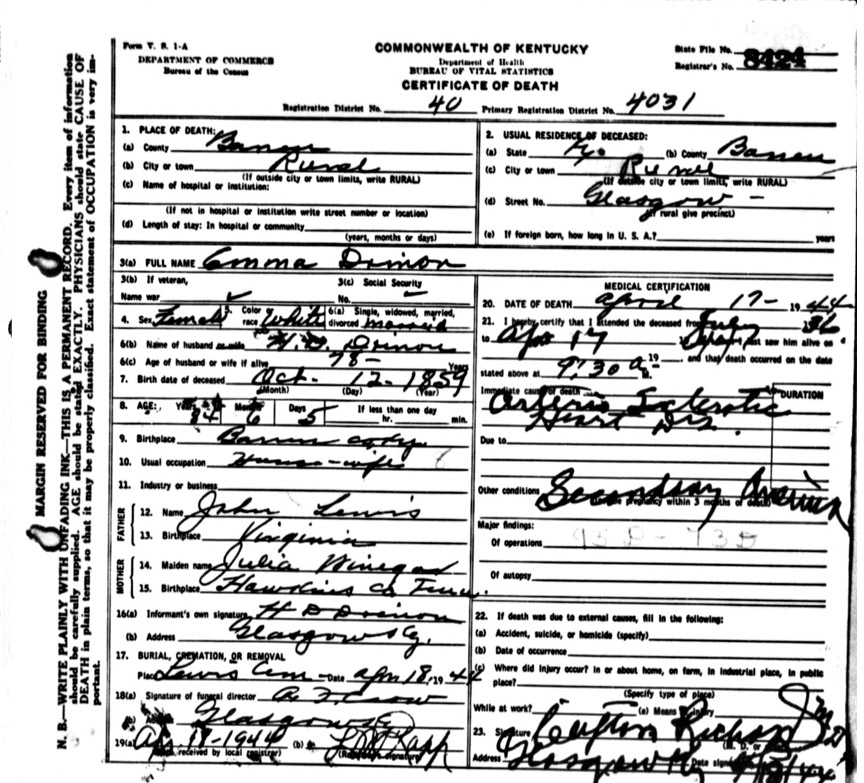 Form V. S. 1-A
DEPARTMENT OF COMMERCE
Bureau of the Census
COMMONWEALTH OF KENTUCKY
Department of Health
BUREAU OF VITAL STATISTICS
CERTIFICATE OF DEATH
State File No.
Registrar's No. 8424
Registration District No. 40 Primary Registration District No. 4031
MARGIN RESERVED FOR BINDING
N. B.—WRITE PLAINLY WITH UNFADING INK—THIS IS A PERMANENT RECORD. Every item of information
should be carefully supplied. AGE should be stated EXACTLY. PHYSICIANS should state CAUSE OF
DEATH in plain terms, so that it may be properly classified. Exact statement of OCCUPATION is very im-
portant.
1. PLACE OF DEATH:
(a) County Barren
(b) City or town Rural
(If outside city or town limits, write RURAL)
(c) Name of hospital or institution:
(If not in hospital or institution write street number or location)
(d) Length of stay: In hospital or community
(years, months or days)
2. USUAL RESIDENCE OF DECEASED:
(a) State Ky. (b) County Barren
(c) City or town Rural
(If outside city or town limits, write RURAL)
(d) Street No. Glasgow -
(If rural give precinct)
(e) If foreign born, how long in U. S. A.? years
3(a) FULL NAME Emma
3(b) If veteran,
Name war
3(c) Social Security
No.
4. Sex Female 5. Color race White 6(a) Single, widowed, married, divorced married
6(b) Name of husband or wife H. D.
6(c) Age of husband or wife if alive 78- Years
7. Birth date of deceased Oct. 12- 1859
(Month) (Day) (Year)
8. AGE: Years 84 Months 6 Days 5 If less than one day
hr. min.
9. Birthplace Barren
10. Usual occupation House-wife
11. Industry or business
FATHER
12. Name John Lewis
13. Birthplace Virginia
MOTHER
14. Maiden name Julia Winegar
15. Birthplace Hawkins Co Tenn.
16(a) Informant's own signature H D
(b) Address Glasgow Ky.
17. BURIAL, CREMATION, OR REMOVAL
Place Lewis Cem - Date Apr 18, 1944
18(a) Signature of funeral director A. F. Crow
(b) Address Glasgow Ky
19(a) Apr 18-1944 (b)
(Date received by local registrar) (Registrar's signature)
MEDICAL CERTIFICATION
20. DATE OF DEATH April 17- 1944
21. I hereby certify that I attended the deceased from July 36
to Apr 17 last saw him alive on
19 and that death occurred on the date
stated above at 9:30 a
Immediate cause of death DURATION
Arterio Sclerotic
Heart Dis.
Due to
Other conditions Secondary Anemia
(Include pregnancy within 3 months of death)
Major findings:
Of operations 95B - 73B
Of autopsy
22. If death was due to external causes, fill in the following:
(a) Accident, suicide, or homicide (specify)
(b) Date of occurrence
(c) Where did injury occur? in or about home, on farm, in industrial place, in public
place?
(Specify type of place)
While at work? (e) Means of injury
23. Signature Clifton Richards
Address Glasgow Ky Date signed